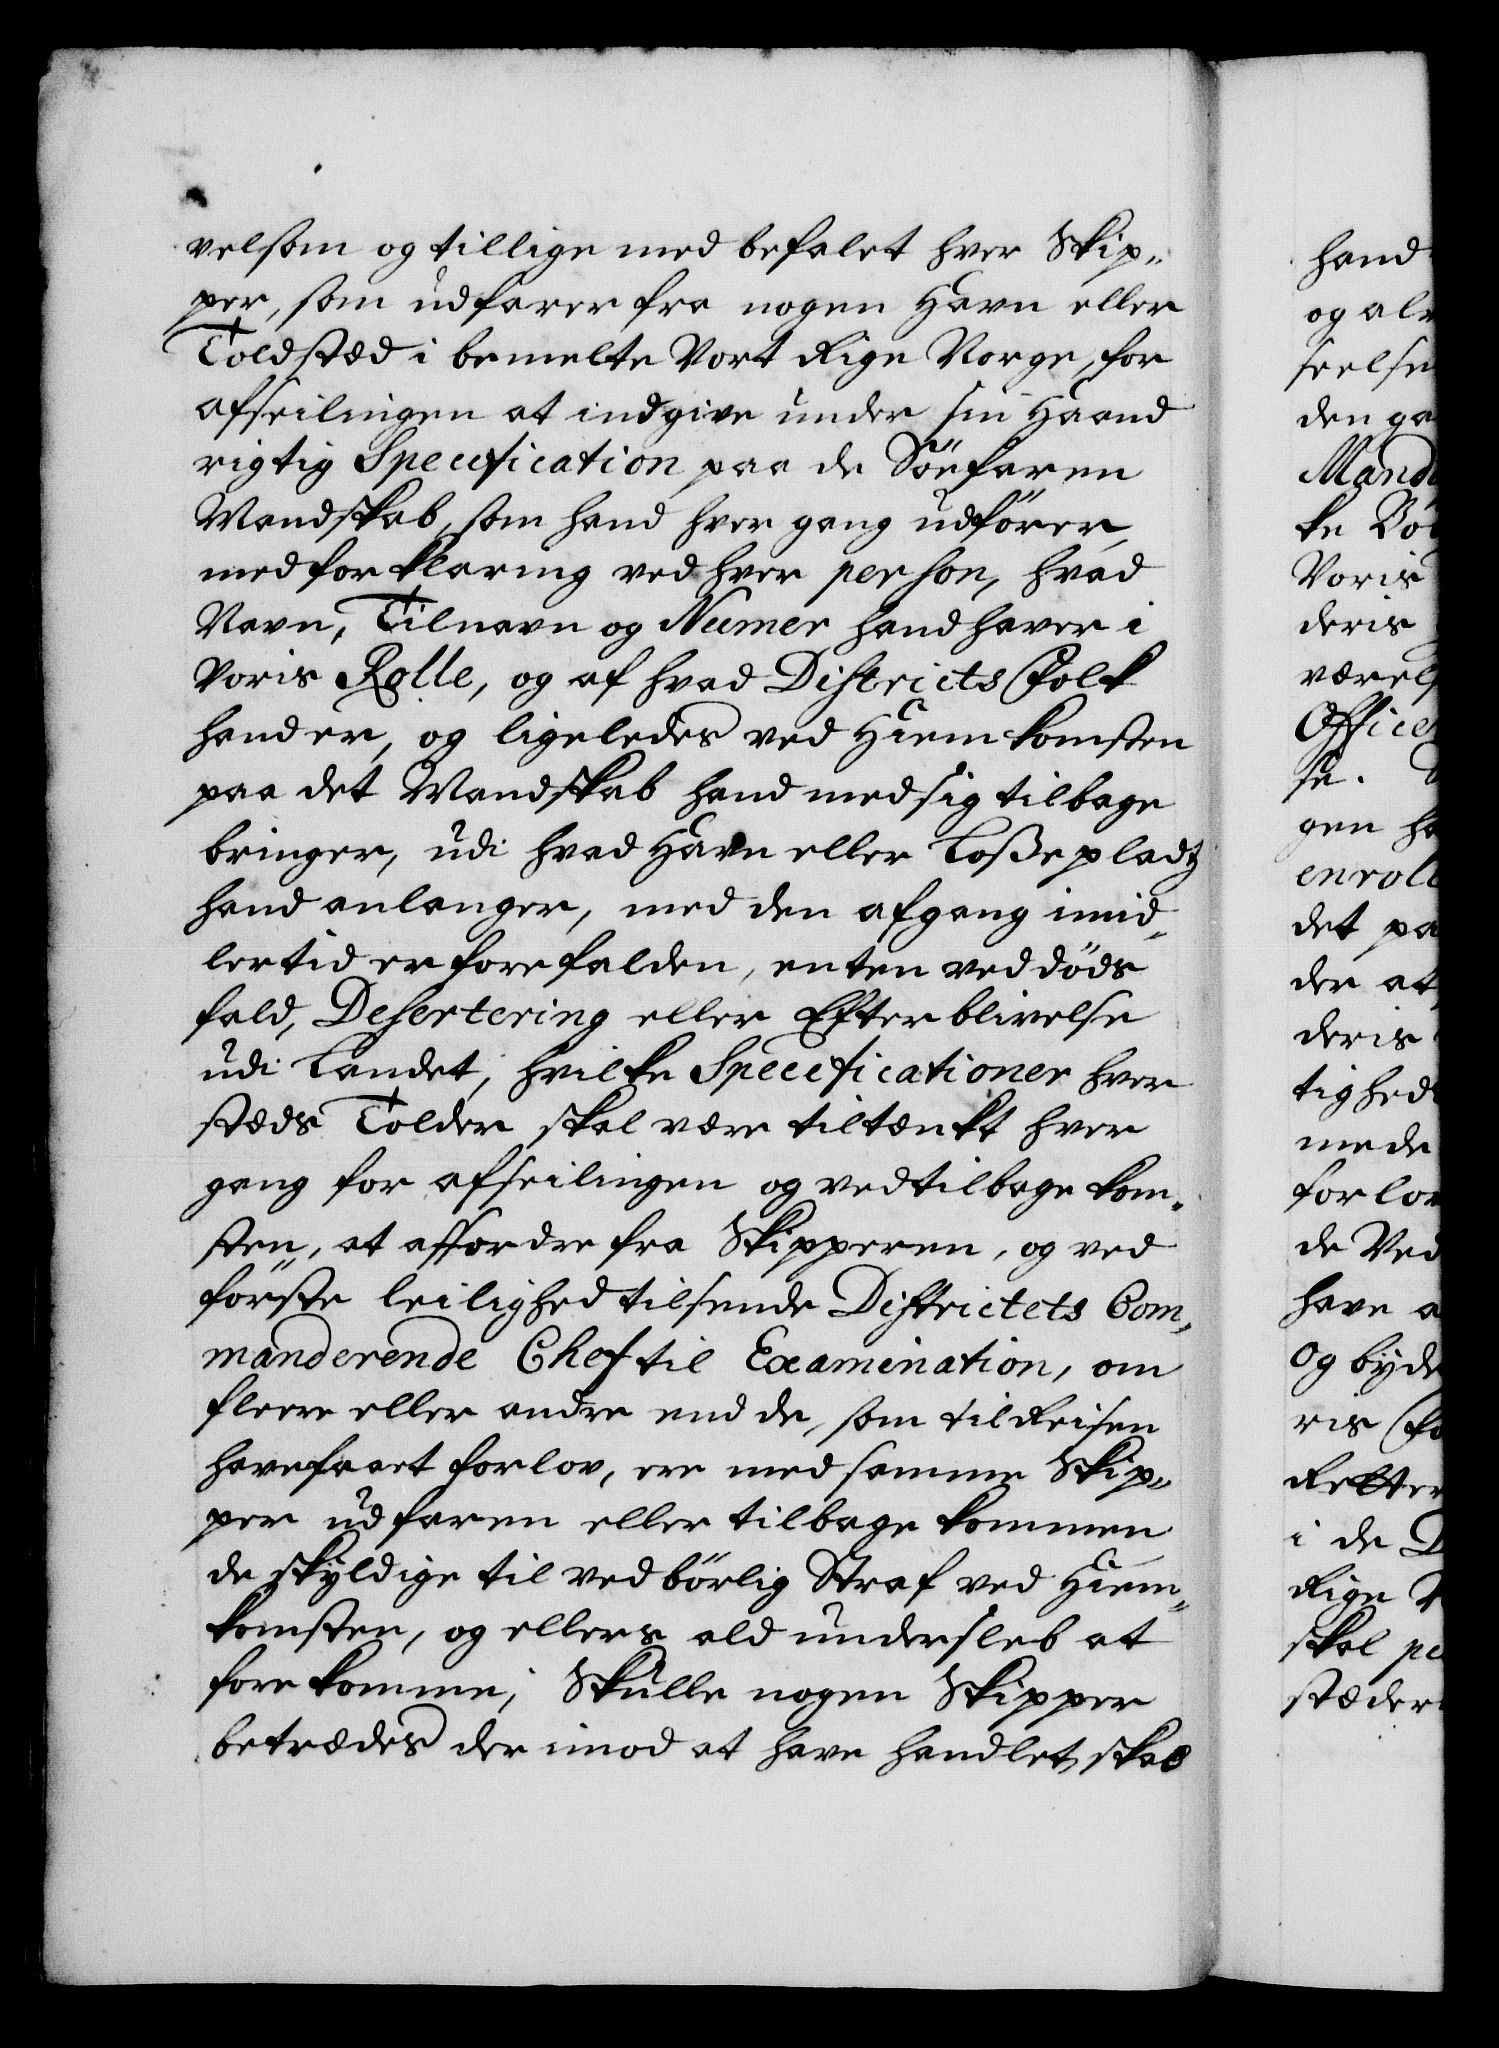 velsom og tillige med befalet hver Skip„
per, som udfarer fra nogen Havn eller
Toldstæd i bemelte Vort Rige Norge, for
afseilingen at indgive under sin Haand
rigtig Specification paa de Söefaren
Mandskab, som hand hver gang udförer,
med forklaring ved hver person, hvad
Navn, Tilnavn og Numer hand haver i
Voris Rolle, og af hvad Districts Folk
hand er, og ligeledes ved Hiemkomsten
paa det Mandskab hand med sig tilbage
bringer, udi hvad Havn eller Losseplads
hand anlanger, med den afgang imid„
lertid er forefalden, enten ved döds
fald, Desertering eller Efterblivelse
udi Landet, hvilke Specificationer hver
stæds Tolder skal være tiltænkt hver
gang for afseilingen og ved tilbagekom„
sten, at affordre fra Skipperen, og ved
förste leilighed tilsende Districtets Com„
manderende Chef til Examination, om
fleere eller andre end de, som til Reisen
have faaet forlov, ere med samme Skip„
per udfaren eller tilbage kommen
de skyldige til vedbörlig Straf ved Hiem„
komsten, og ellers ald undersleb at
forekomme; Skulle nogen Skipper
betrædes der imod at have handlet, skal
hand
og al
seelse
den ga
Mand
ke Bö
Voris
deris
værels
Office
se.
gen ha
enroll
det pa
der at
deris
tighed
mede
forlor
de Ved
have a
Og byde
ris Fo
Retter
i de D
Rige N
skal pe
stæder